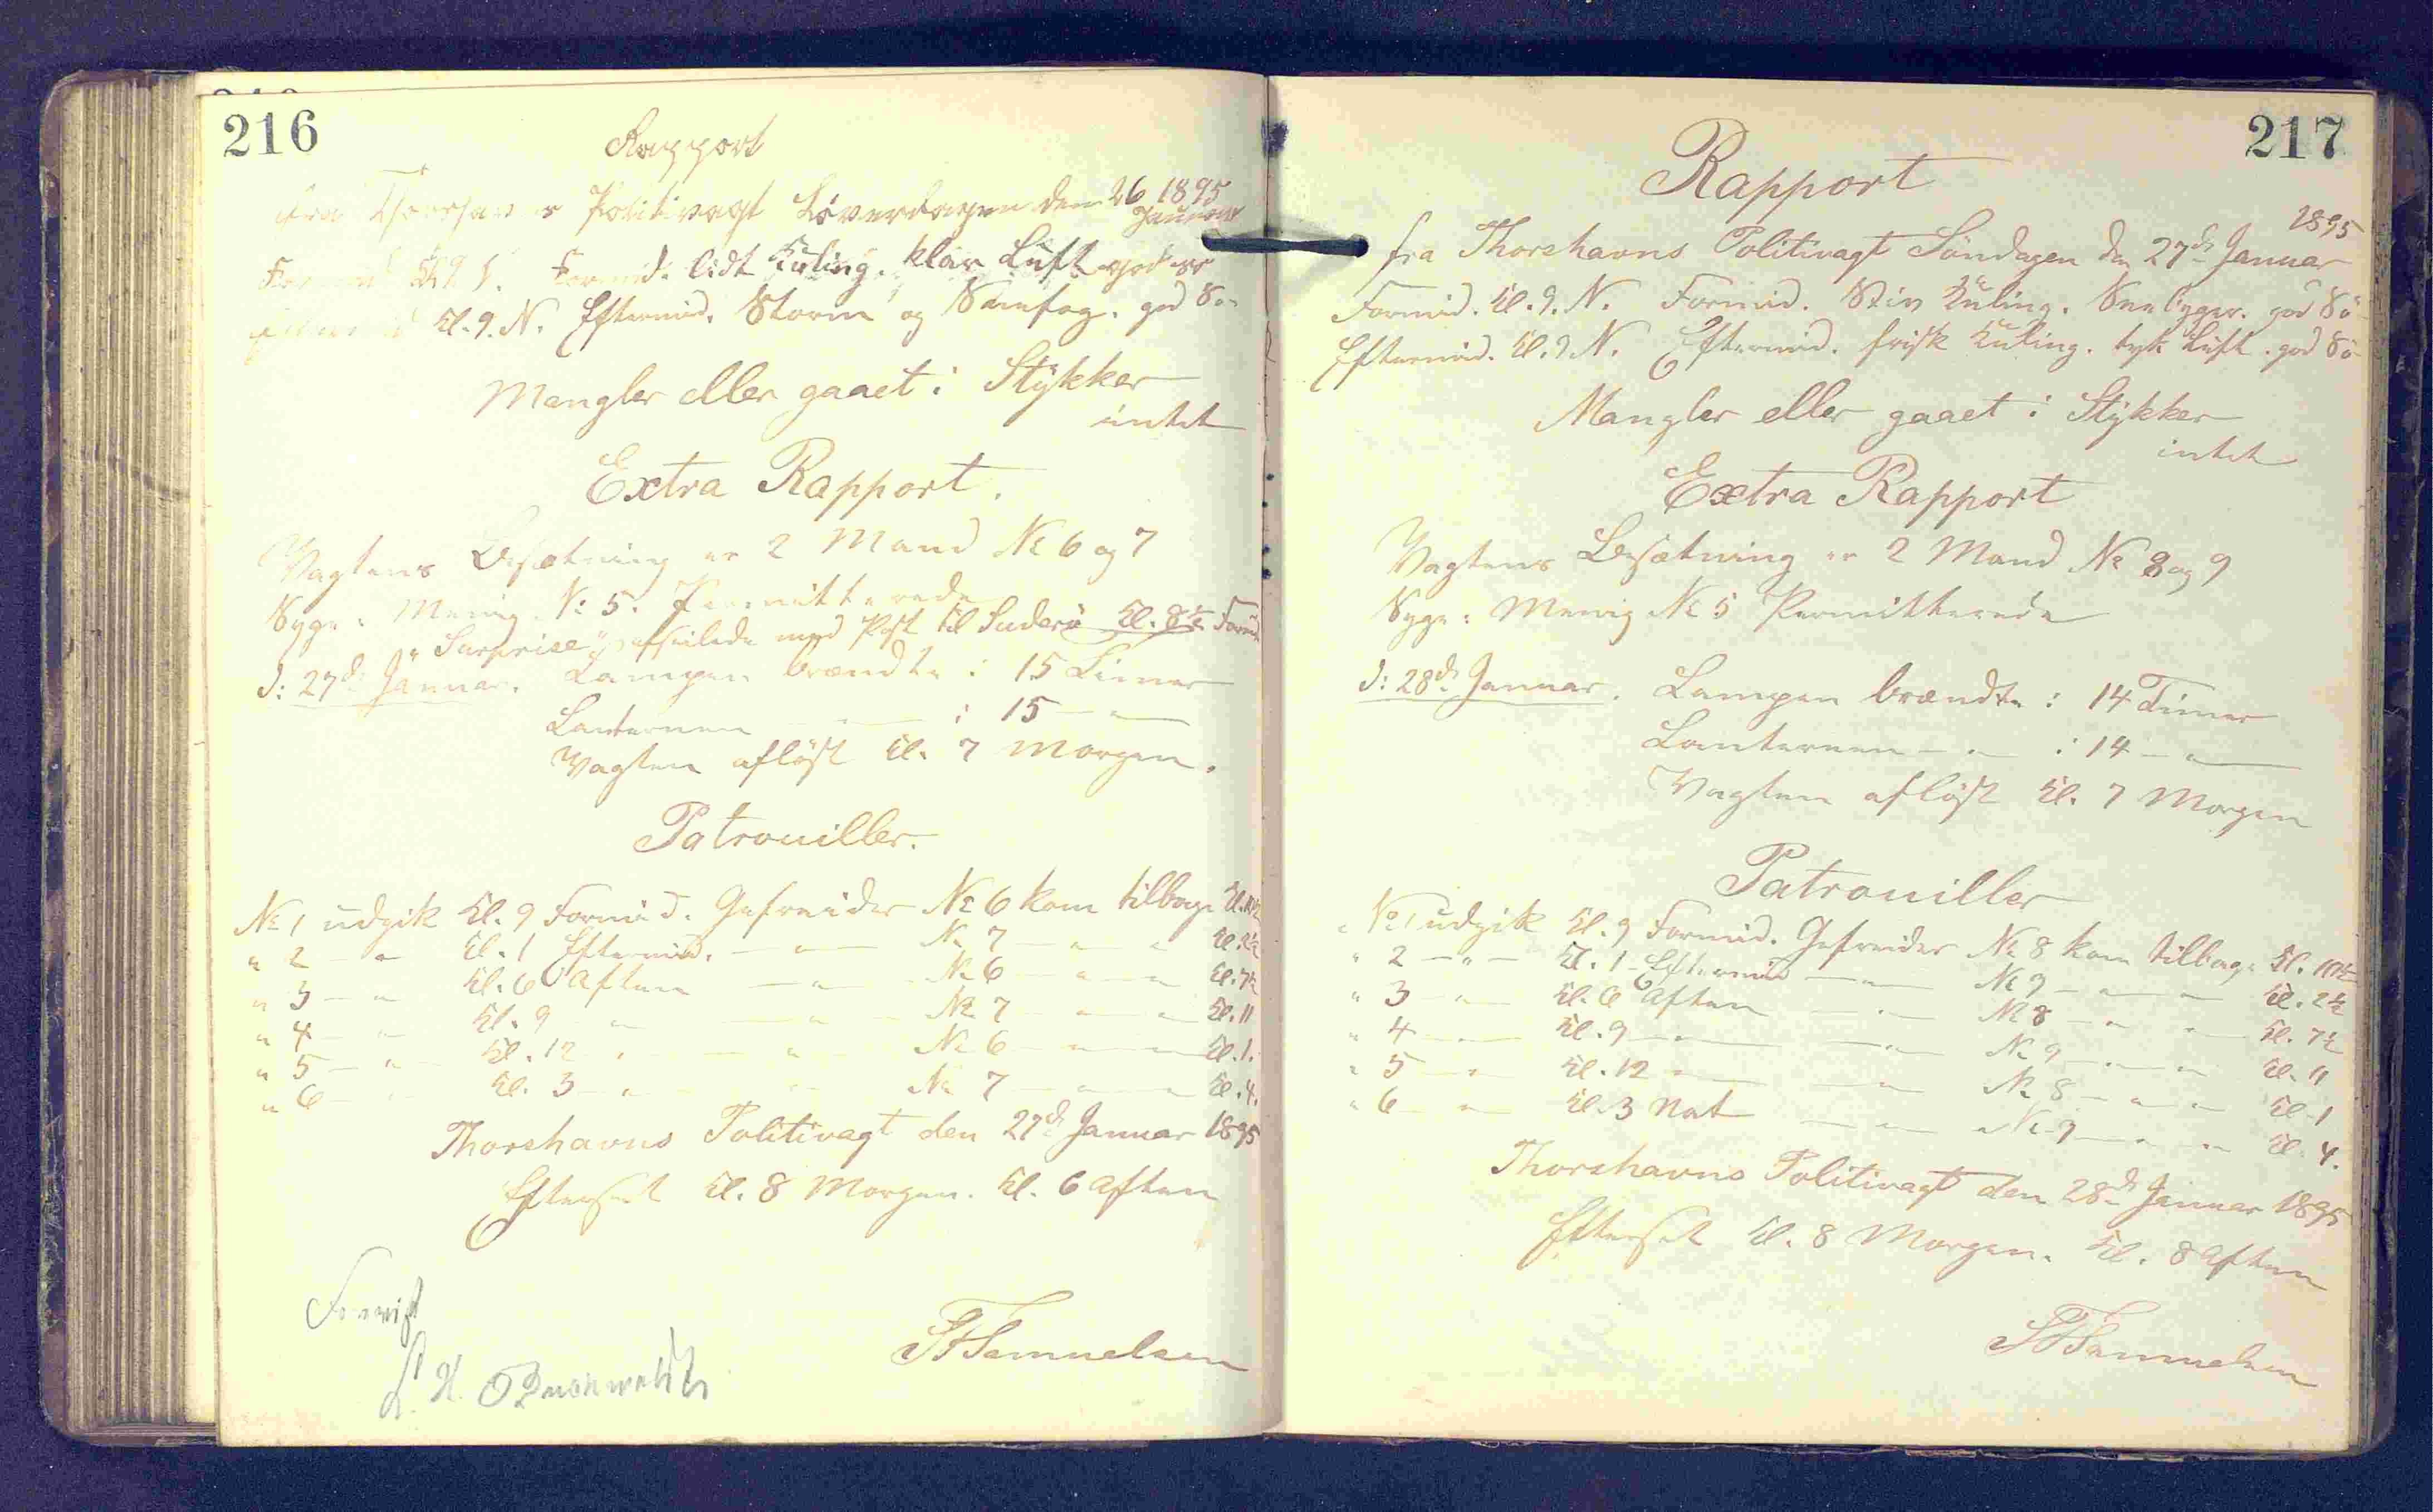 216
Rapport
fra Thorshavns Politivagt Löverdagen den 26 1895
Januar
Formid. Kl. 9. N. Formid. lidt Kuling. klar Luft god Sö
Eftermid. Kl. 9. N. Eftermid. Storm og Snefog. god Sö
Mangler eller gaaet i Stykker
intet
Extra Rapport.
Vagtens Besætning er 2 Mand № 6 og 7
Syge: Menig № 5. Permitterede
"Surprise" afseilede med Post til Suderö Kl. 8½ Formid
D: 27de Januar. Lampen brændte i 15 Timer
Lanternen — " — i 15 — " —
Vagten aflöst Kl. 7 Morgen.
Patrouiller.
№ 1 udgik Kl. 9 Formid. Gefreider № 6 kom tilbage Kl. 10½
" 2 — " Kl. 1 Eftermid. — " — № 7 — " — " Kl. 2½
" 3 — " Kl. 6 Aften — " — № 6 — " — " Kl. 7½
" 4 — " Kl. 9 " — " — № 7 — " — " Kl. 11
" 5 — " Kl. 12 " — " — № 6 — " — " Kl. 1.
" 6 — " Kl. 3 — " — " — № 7 — " — " Kl. 4.
Thorshavns Politivagt den 27de Januar 1895
Efterset Kl. 8 Morgen. Kl. 6 Aften
Forevist
L. H. O Buchwaldt
Samuelsen
217
Rapport
1895
fra Thorshavns Politivagt Söndagen den 27de Januar
Formid. Kl. 9. N. Formid. Stiv Kuling. Snebyger. god Sö
Eftermid. Kl. 9 N. Eftermid. frisk Kuling. tyk Luft. god Sö
Mangler eller gaaet i Stykker
intet
Extra Rapport
Vagtens Besætning er 2 Mand № 8 og 9
Syge: Menig № 5 Permitterede
D: 28de Januar. Lampen brændte i 14 Timer
Lanternen — " — i 14 — " —
Vagten aflöst Kl. 7 Morgen
Patrouiller
№ 1 udgik Kl. 9 Formid. Gefreider № 8 kom tilbage Kl. 10½
" 2 — " — Kl. 1 Eftermid — " — № 9 — " — " Kl. 2½
" 3 — " — Kl. 6 Aften — " — № 8 — " — " Kl. 7½
" 4 — " — Kl. 9 — " — — " — № 9 — " — " Kl. 11
" 5 — " — Kl. 12 — " — — " — № 8 — " — " Kl. 1
" 6 — " — Kl. 3 Nat — " — № 9 — " — " Kl. 4.
Thorshavns Politivagt den 28de Januar 1895
Efterset Kl. 8 Morgen. Kl. 8 Aften
Samuelsen